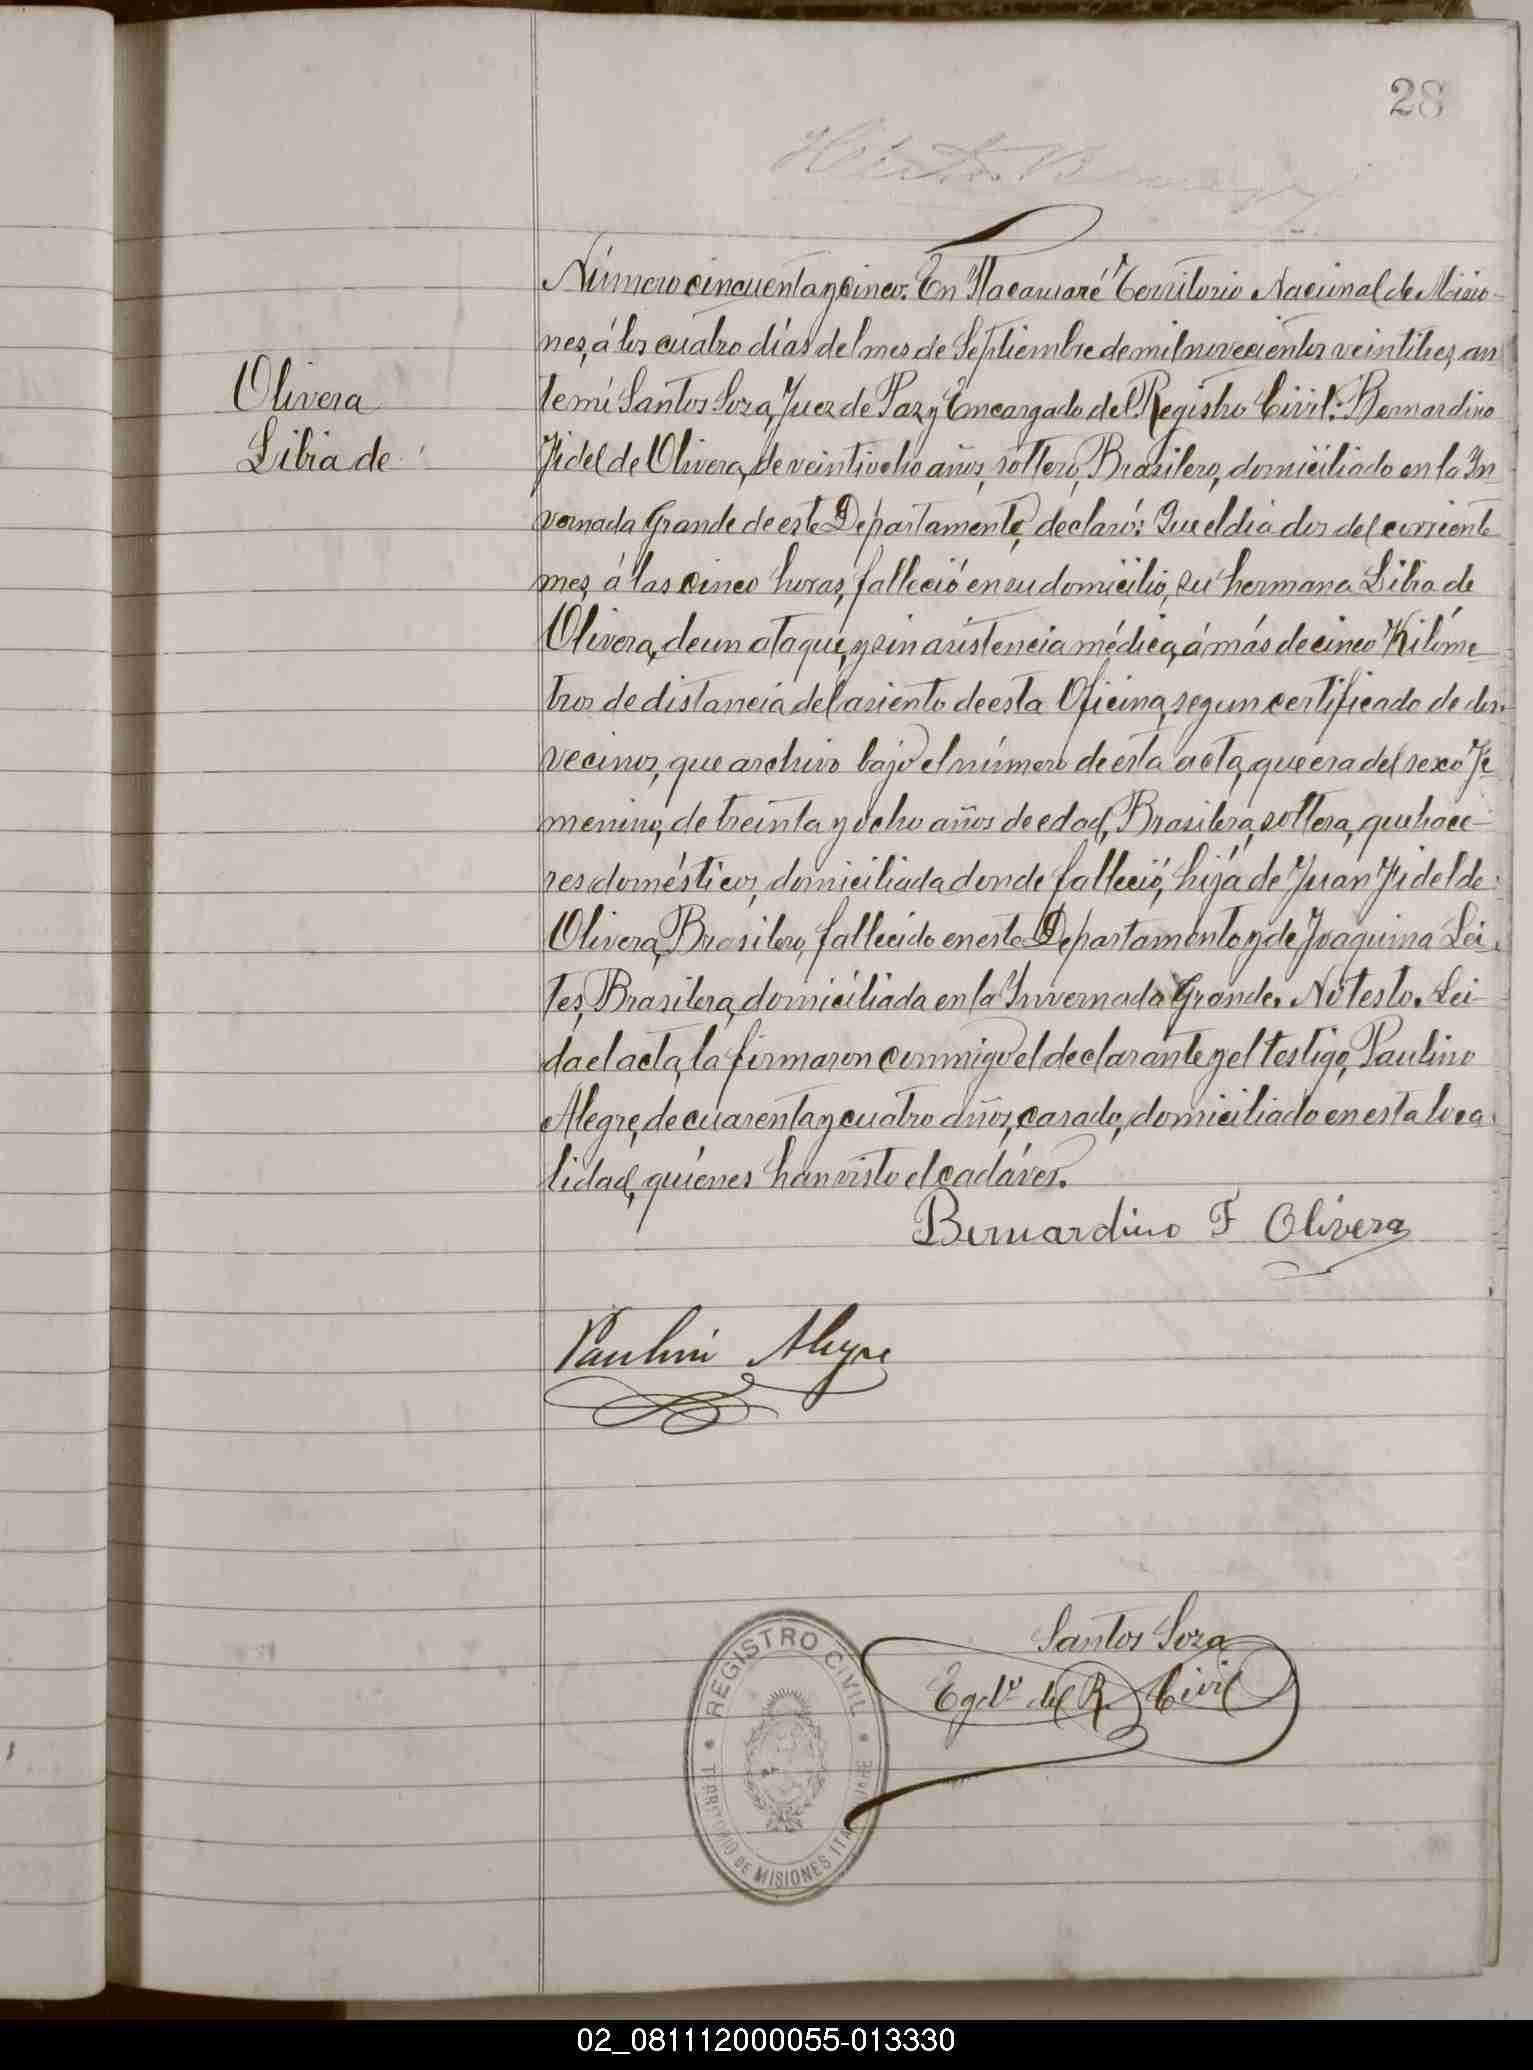 28
Número cincuenta y cinco. En Itacaruaré Territorio Nacional de Misio-
nes, á los cuatro días del mes de Septiembre de mil novecientos veintitres, an
Olivera
Libia de
te mí Santos Soza, Juez de Paz y Encargado del Registro Civil: Bernardino
Fidel de Olivera, de veintiocho años, soltero, Brasilero, domiciliado en la In
vernada Grande de este Departamento, declaró: Que el día dos del corriente
mes, á las cinco horas, falleció en su domicilio, su hermana Libia de
Olivera, de un ataque, y sin asistencia médica, á más de cinco Kilóme
tros de distancia del asiento de esta Oficina, segun certificado de dos
vecinos, que archivo bajo el número de esta acta, que era del sexo Fe
menino, de treinta y ocho años de edad, Brasilera, soltera, quehace-
res domésticos, domiciliada donde falleció, hija de Juan Fidel de
Olivera, Brasilero, fallecido en este Departamento y de Joaquina Lei
tes, Brasilera, domiciliada en la Invernada Grande. No testo. Lei
da el acta, la firmaron conmigo el declarante y el testigo, Paulino
Alegre, de cuarenta y cuatro años, casado, domiciliado en esta loca
lidad, quiénes han visto el cadáver.
Bernardino F Olivera
Paulino Alegre
Santos Soza
Egdo del R. Civil
REGISTRO CIVIL
TERRITORIO DE MISIONES ITACARUARE
02_081112000055-013330